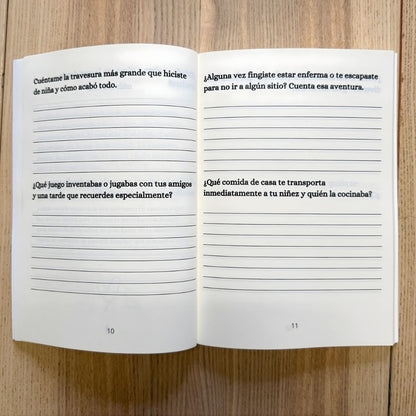 Cuéntame la travesura más grande que hiciste
de niña y cómo acabó todo.
¿Qué juego inventabas o jugabas con tus amigos
y una tarde que recuerdes especialmente?
10
¿Alguna vez fingiste estar enferma o te escapaste
para no ir a algún sitio? Cuenta esa aventura.
¿Qué comida de casa te transporta
inmediatamente a tu niñez y quién la cocinaba?
11